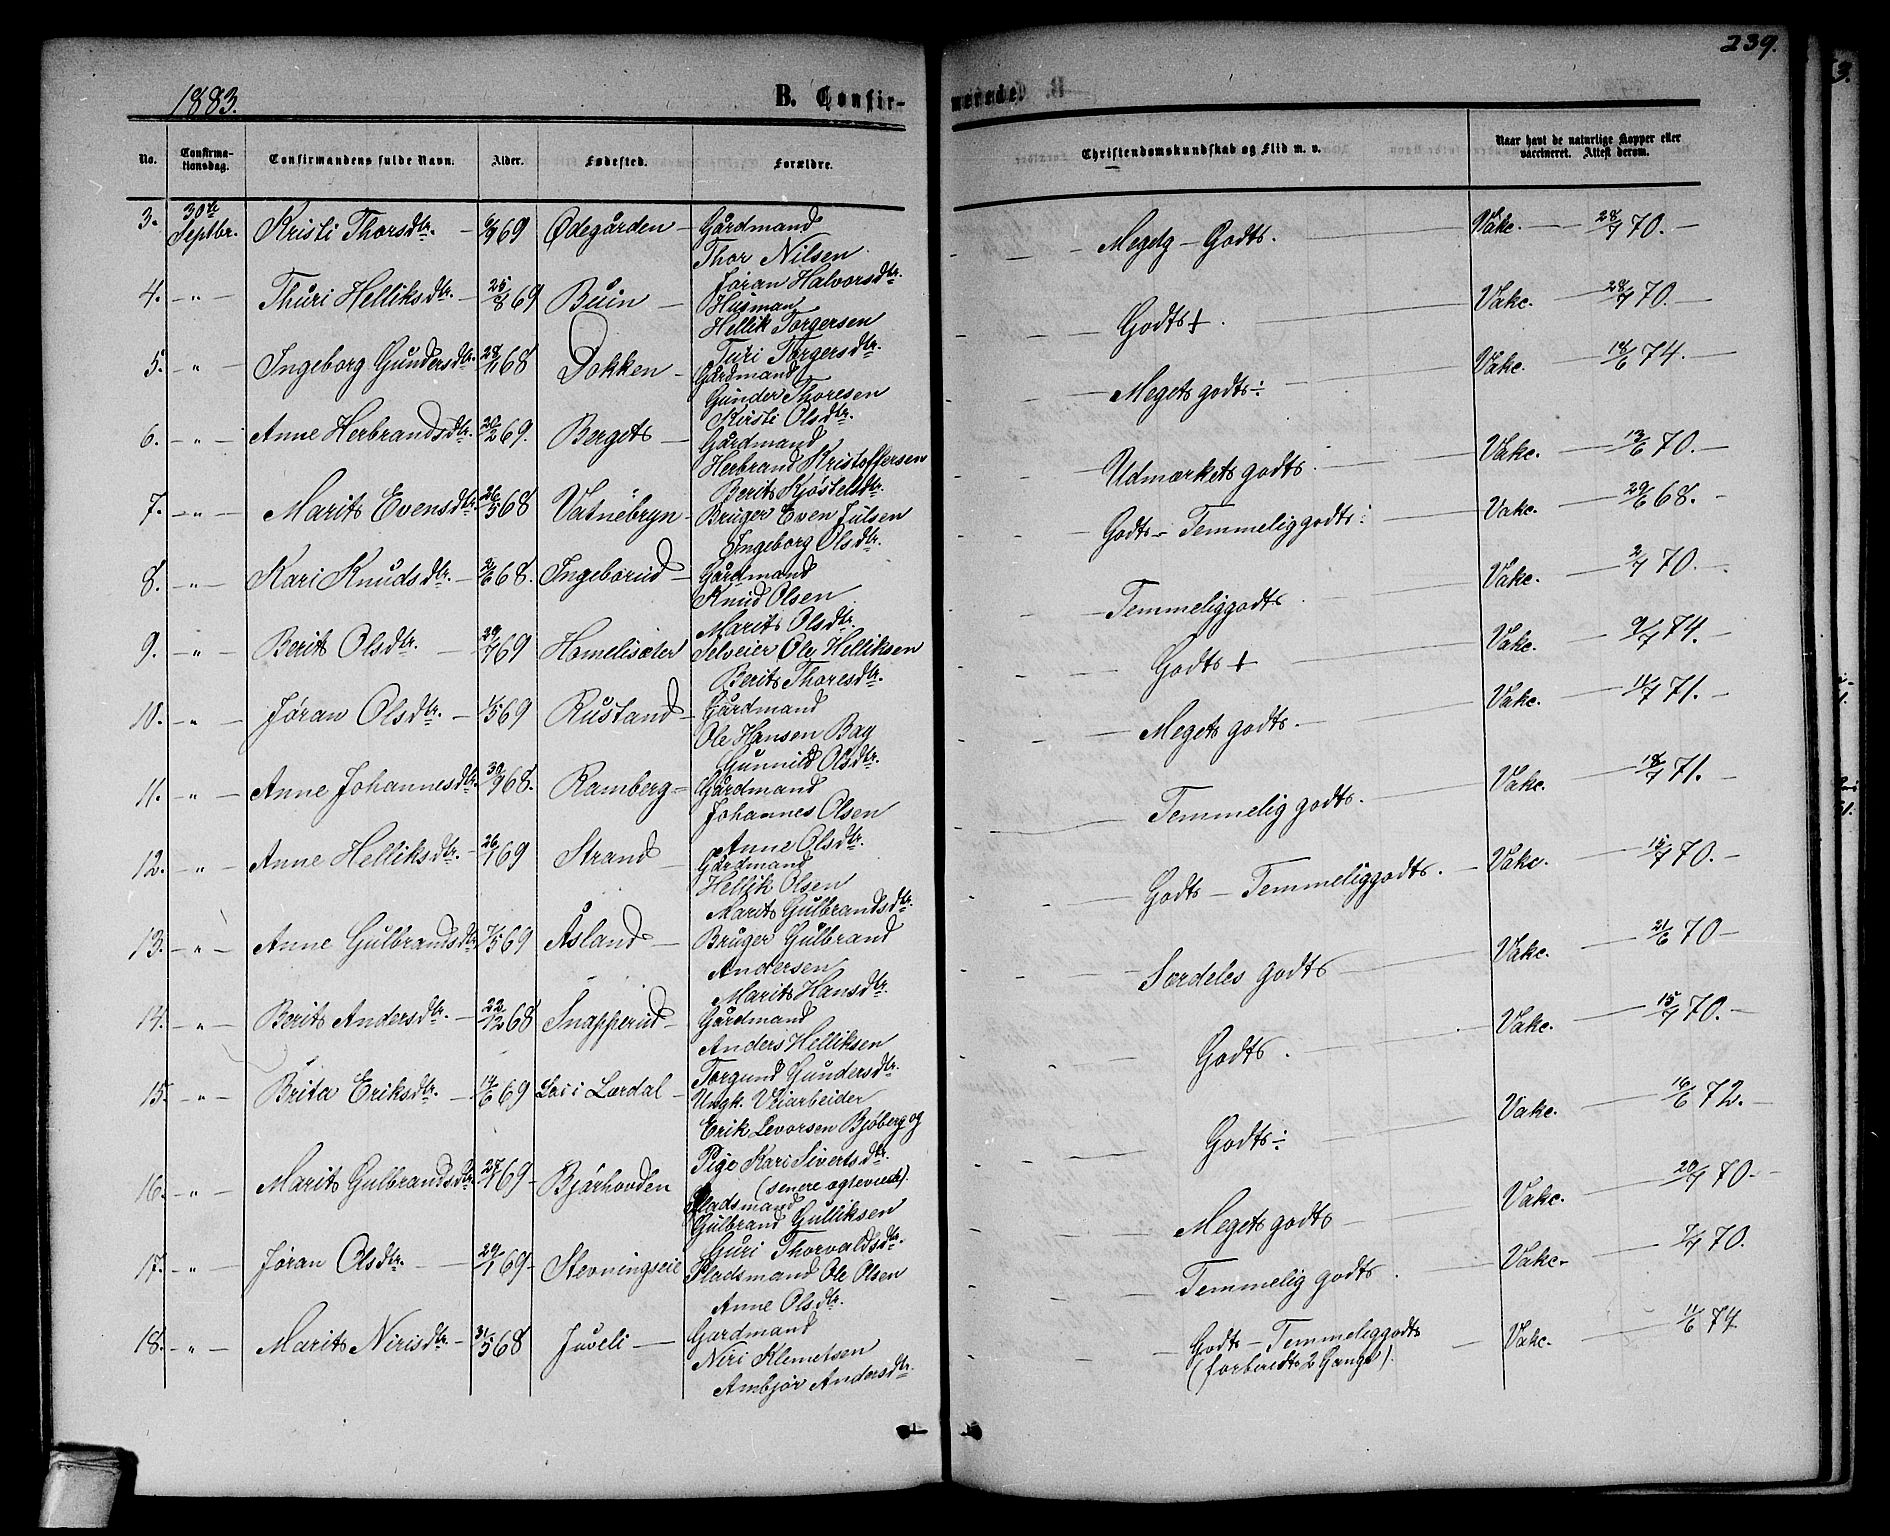 239.
1883.
B. Confir-
merede.
No.
Confirma-
tionsdag.
Confirmandens fulde Navn.
Alder.
Fødested.
Forældre.
Christendomskundskab og Flid m. v.
Naar havt de naturlige Kopper eller
vaccineret. Attest derom.
3. 30te Septbr. Kristi Thorsdtr. 69 Ødegården Gårdmand
Thor Nilsen
Jøran Halvorsdtr.
Meget - Godt. Vakc. 28/7 70.
4. " Thuri Helliksdtr. 25/8 69 Buin Husman
Hellik Torgersen
Turi Torgersdtr.
Godt + . Vakc. 28/7 70.
5. " Ingeborg Gundersdtr. 28/11 68 Dokken Gårdmand
Gunder Thoresen
Kirsti Olsdtr.
Meget godt ÷ Vakc. 18/6 74.
6. " Anne Herbrandsdtr. 20/2 69. Berget Gårdmand
Herbrand Kristoffersen
Berit Kjøstelsdtr.
Udmærket godt. Vakc. 13/6 70.
7. " Marit Evensdtr. 26/5 68 Vatnebryn Bruger Even Julsen
Ingeborg Olsdtr.
Godt - Temmelig godt: Vakc. 29/6 68.
8. " Kari Knudsdtr. 2/6 68. Ingeborud Gårdmand
Knud Olsen
Marit Olsdtr.
Temmelig godt Vakc. 2/7 70.
9. " Berit Olsdtr. 29/7 69 Homelisæter Selveier Ole Helliksen
Berit Thoresdtr.
Godt + Vakc. 9/7 74.
10. " Jøran Olsdtr. 1/5 69 Rustand Gårdmand
Ole Hansen Bay
Gunnild Olsdtr.
Meget godt. Vakc. 11/7 71.
11. " Anne Johannesdtr. 30/9 68. Ramberg Gårdmand
Johannes Olsen
Anne Olsdtr.
Temmelig godt. Vakc. 18/7 71.
12. " Anne Helliksdtr. 26/1 69 Strand Gårdmand
Hellik Olsen
Marit Gulbrandsdtr.
Godt - Temmelig godt. Vakc. 14/7 70.
13. " Anne Gulbrandsdtr. 7/5 69 Åsland Bruger Gulbrand
Andersen
Marit Hansdtr.
Særdeles godt Vakc. 21/6 70
14. " Berit Andersdtr. 22/12 68 Snapperud Gårdmand
Anders Helliksen
Torgund Gundersdtr.
Godt. Vakc. 15/7 70.
15. " Brita Eriksdtr. 14/6 69 i Lærdal Ungk. Veiarbeider
Erik Levorsen Bjøberg og
Pige Kari Sivertsdtr.
(senere ægteviede).
Godt ÷ Vakc. 16/6 72.
16. " Marit Gulbrandsdtr. 27/1 69 Bjørhovden Pladsmand
Gulbrand Gulliksen
Guri Thorvaldsdtr.
Meget godt Vakc. 20/7 70.
17. " Jøran Olsdtr. 29/1 69 Stevningseie Pladsmand Ole Olsen
Anne Olsdtr.
Temmelig godt. Vakc. 7/7 70.
18. " Marit Nirisdtr. 31/5 68 Juveli Gardmand
Niri Klemetsen
Ambjør Andersdtr
Godt - Temmelig godt
(forberedt 2 Gange). Vakc. 11/6 74